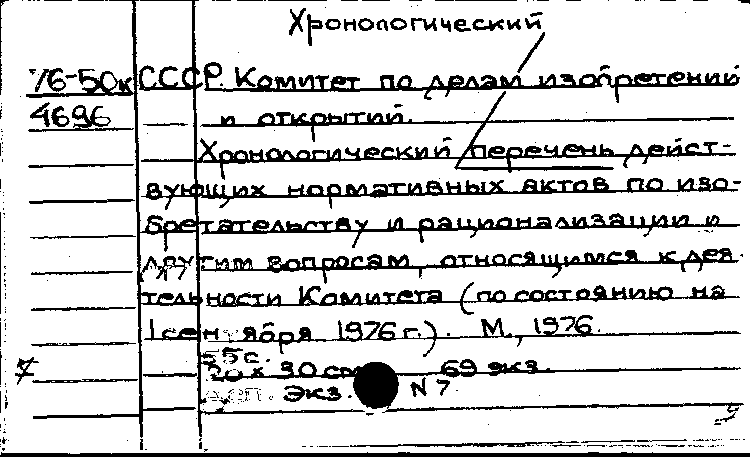 Хронологический
76-50к СССР. Комитет по делам изобретений
4696 и открытий.
Хронологический перечень дейст-
вующих нормативных актов по изо-
бретательству и рационализации и
другим вопросам, относящимся к дея-
тельности Комитета (по состоянию на
1 сентября 1976 г.). М., 1976.
55 с.
20 х 30 см 69 экз.
Экз. N 7